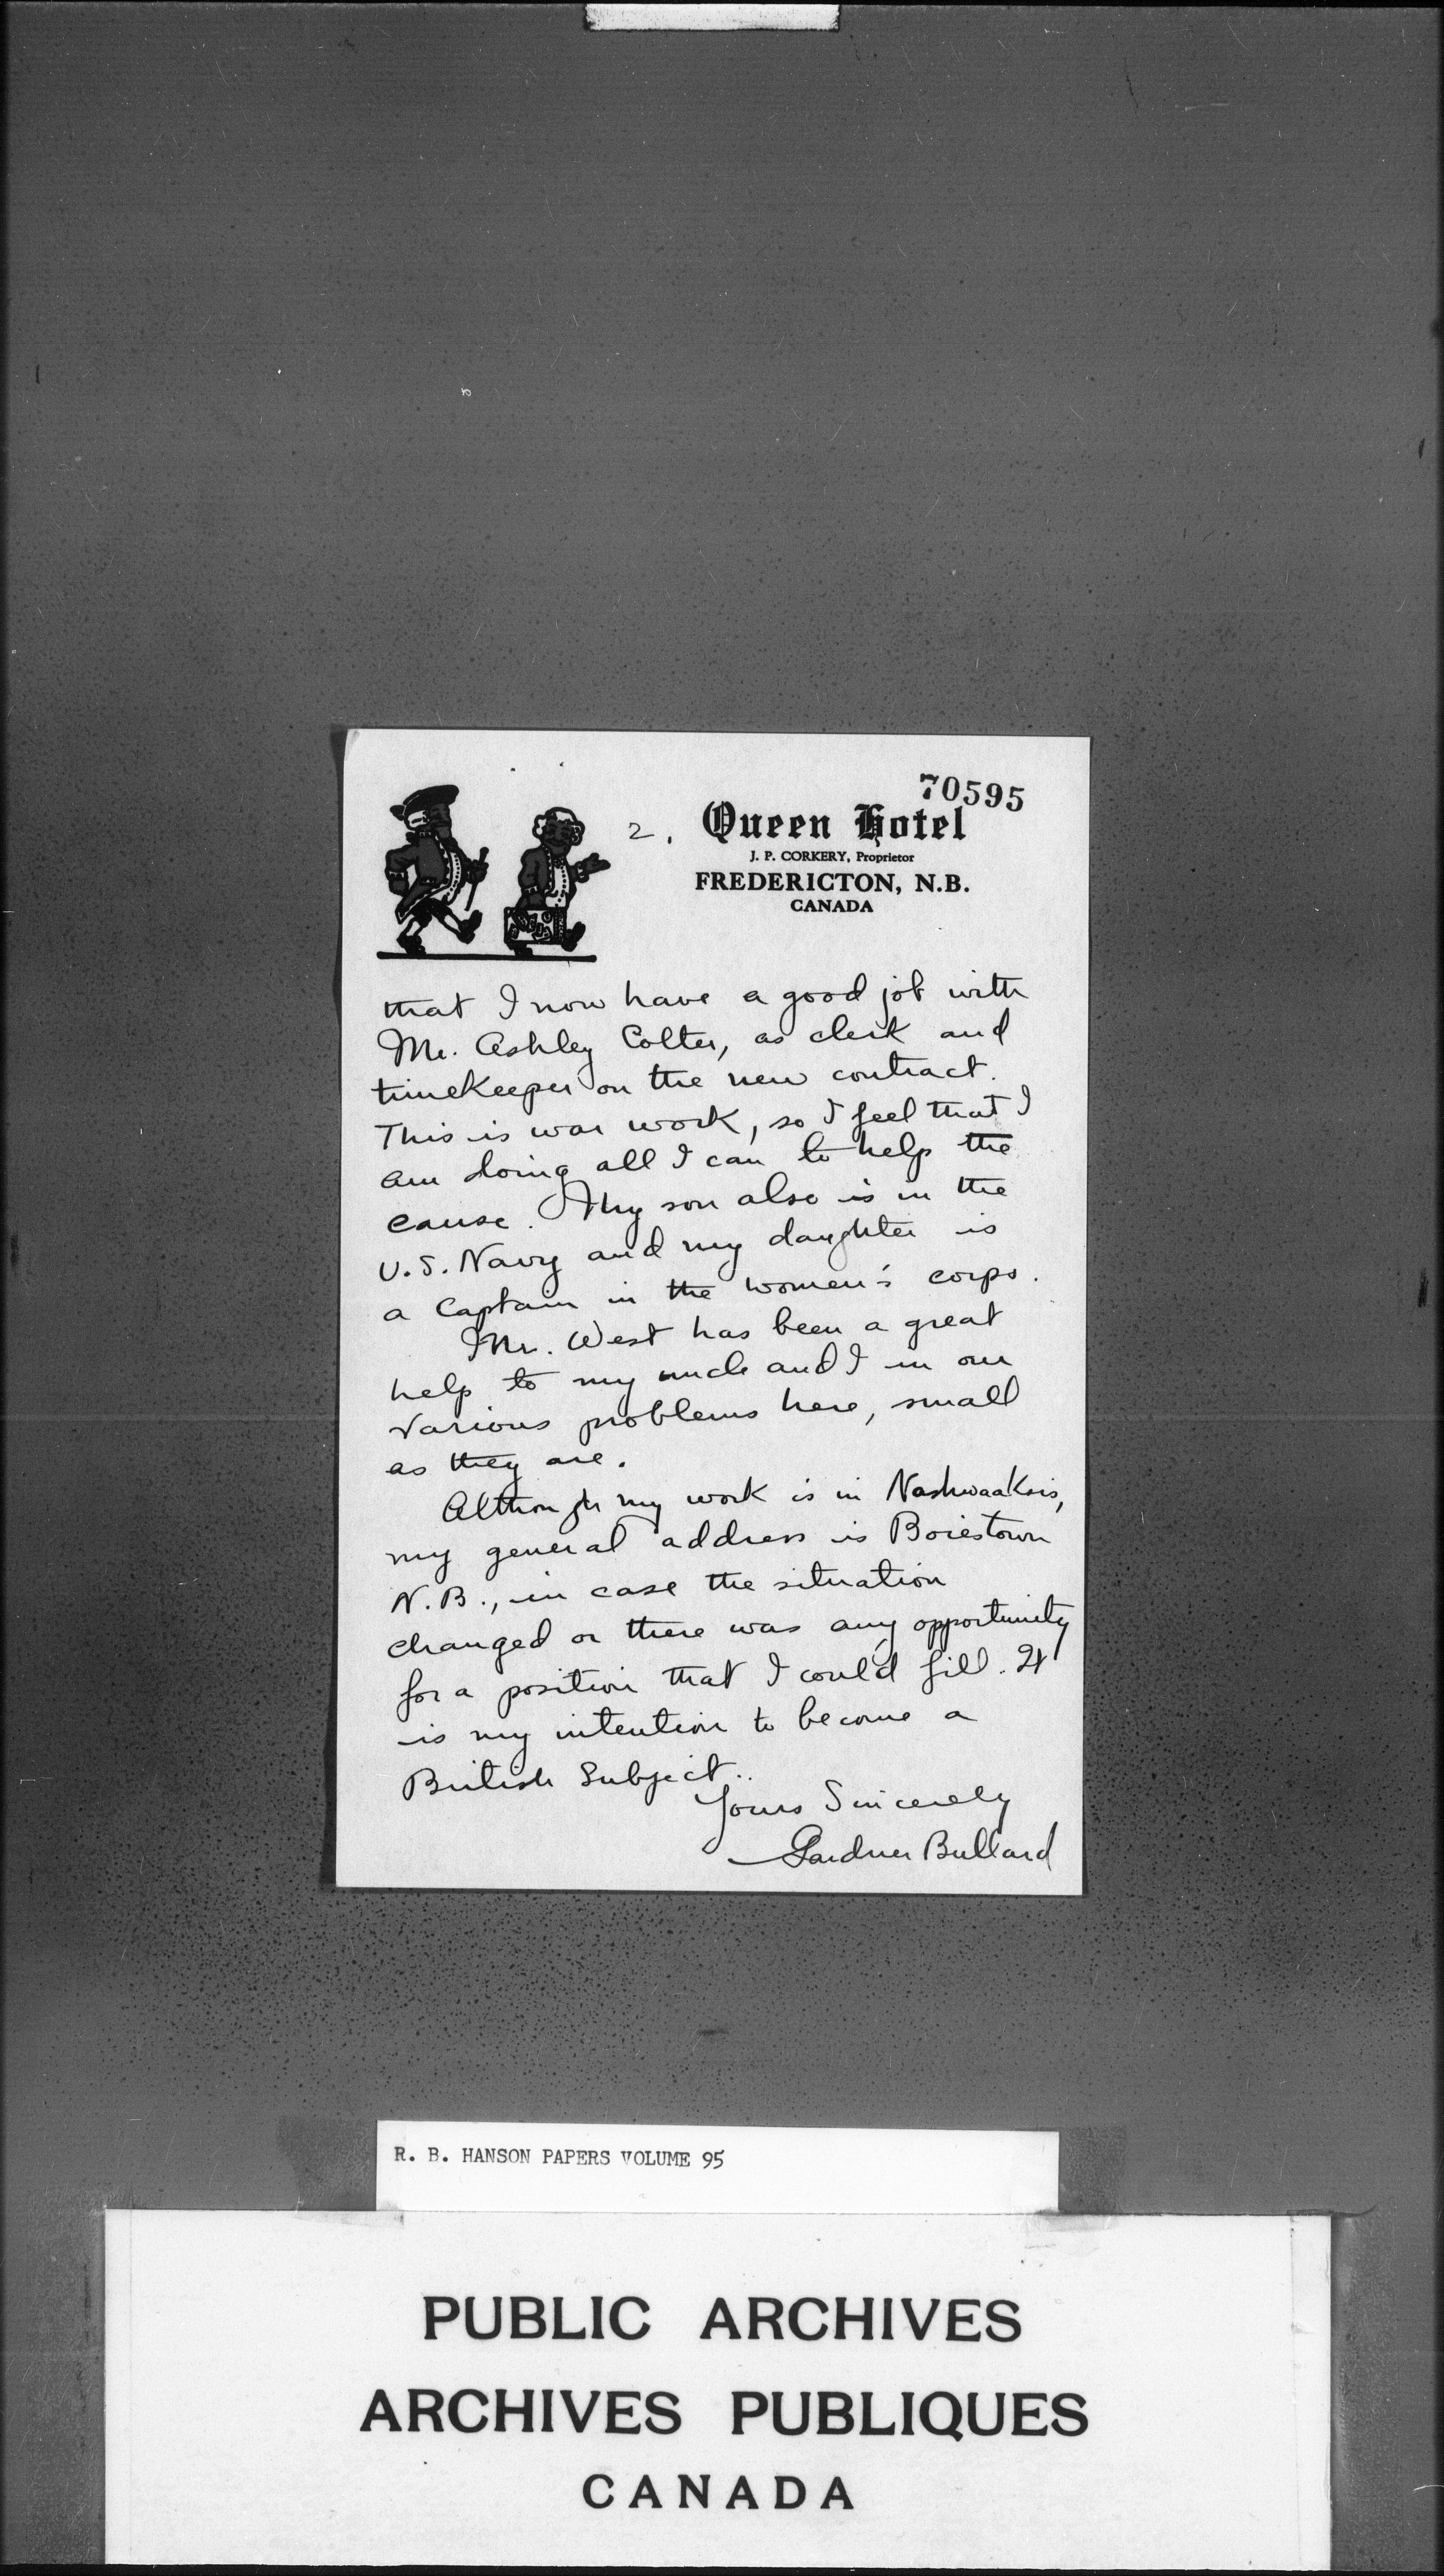 70595
2. Queen Hotel
J. P. CORKERY, Proprietor
FREDERICTON, N.B.
CANADA
that I now have a good job with
Mr. Ashley Colter, as clerk and
timekeeper on the new contract.
This is war work, so I feel that I
am doing all I can to help the
cause. My son also is in the
U.S. Navy and my daughter is
a Captain in the women's corps.
Mr. West has been a great
help to my uncle and I in our
various problems here, small
as they are.
Although my work is in Nashwaaksis,
my general address is Boiestown
N.B., in case the situation
changed or there was any opportunity
for a position that I could fill. It
is my intention to become a
British Subject..
Yours Sincerely
Gardner Bullard
R. B. HANSON PAPERS VOLUME 95
PUBLIC ARCHIVES
ARCHIVES PUBLIQUES
CANADA